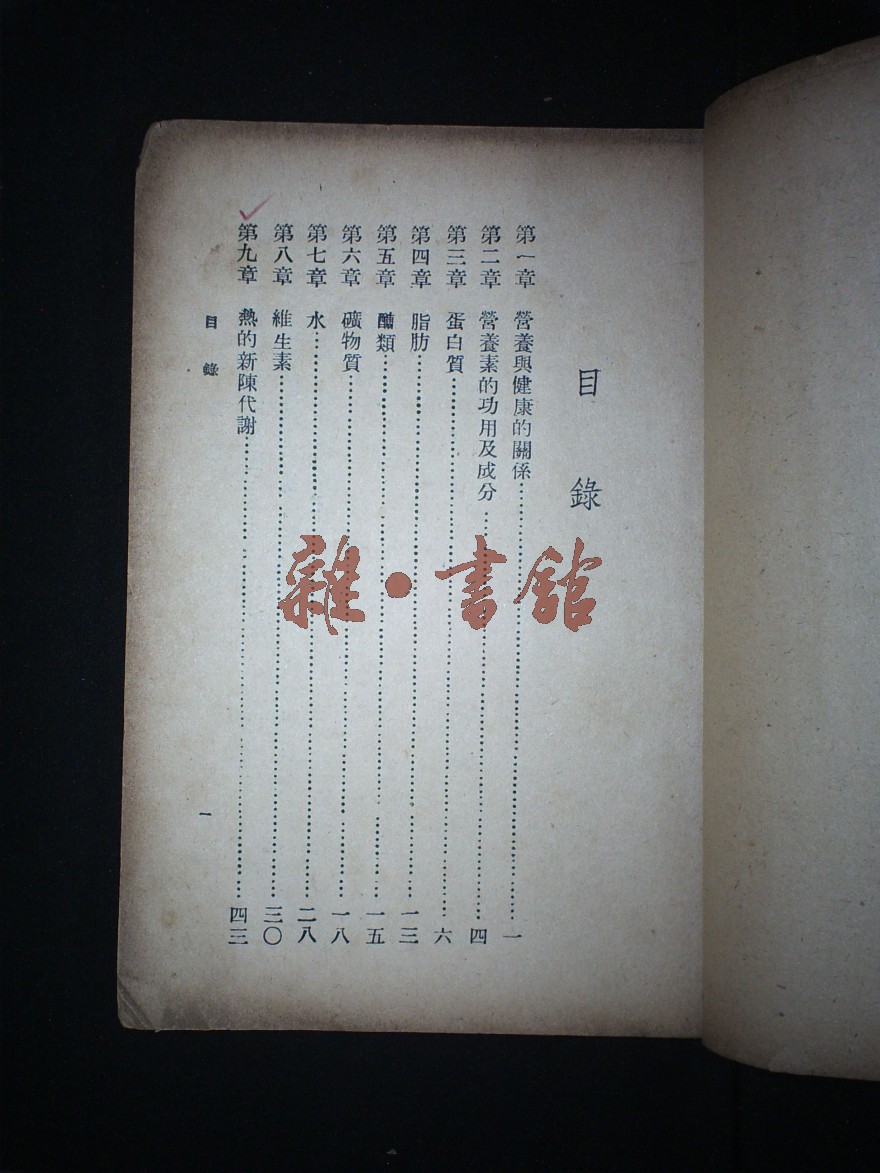 目錄
第一章 營養與健康的關係……一
第二章 營養素的功用及成分……四
第三章 蛋白質……六
第四章 脂肪……一三
第五章 醣類……一五
第六章 礦物質……一八
第七章 水……二八
第八章 維生素……三〇
第九章 熱的新陳代謝……四三
目錄
一
雜·書館